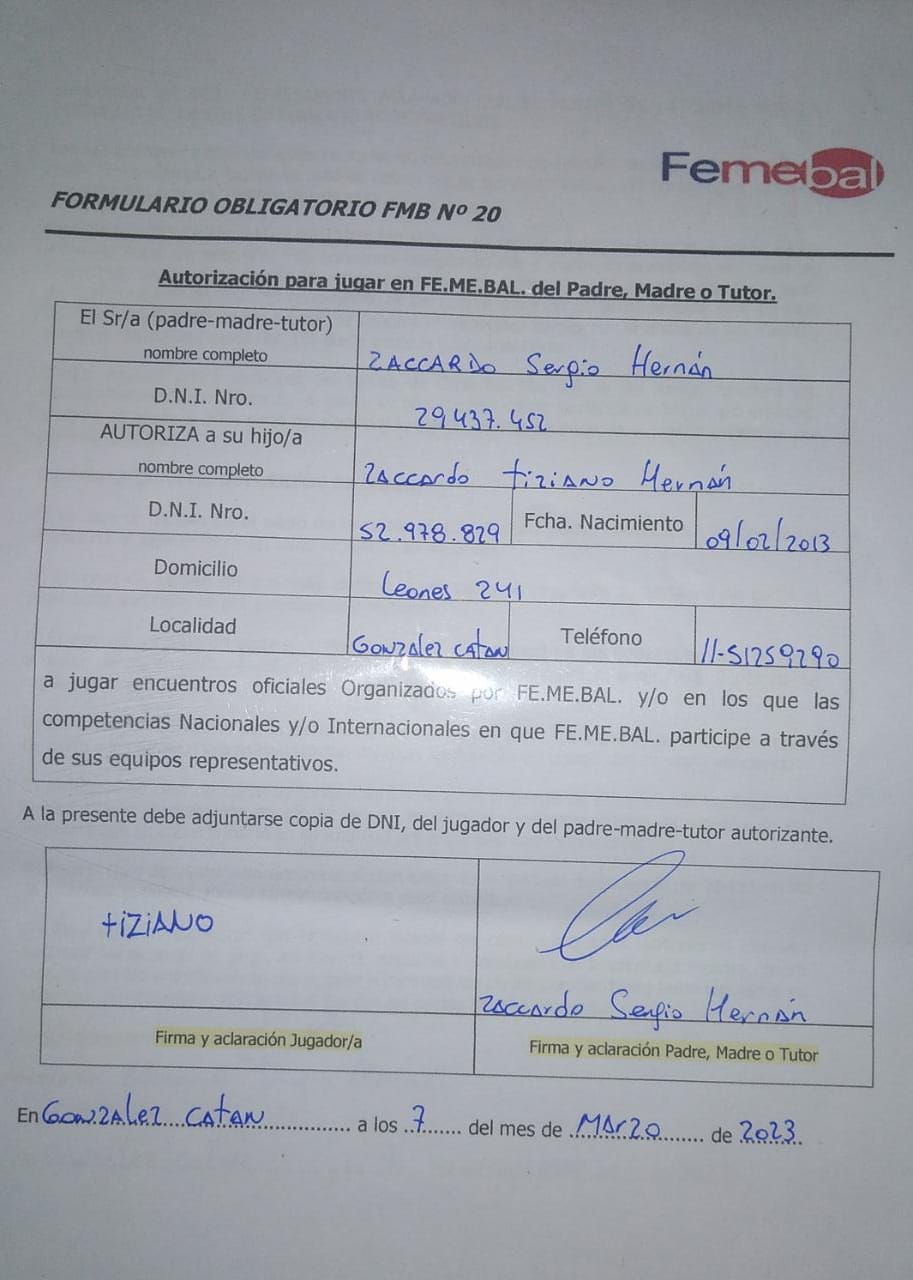 Femebal
FORMULARIO OBLIGATORIO FMB Nº 20
Autorización para jugar en FE.ME.BAL. del Padre, Madre o Tutor.
El Sr/a (padre-madre-tutor)
nombre completo
ZACCARDO Sergio Hernán
D.N.I. Nro.
29.437.452
AUTORIZA a su hijo/a
nombre completo
Zaccardo tiziANO Hernán
D.N.I. Nro.
52.978.829
Fcha. Nacimiento
09/02/2013
Domicilio
Leones 241
Localidad
GONZAlez CAtAN
Teléfono
11-51259290
a jugar encuentros oficiales Organizados por FE.ME.BAL. y/o en los que las
competencias Nacionales y/o Internacionales en que FE.ME.BAL. participe a través
de sus equipos representativos.
A la presente debe adjuntarse copia de DNI, del jugador y del padre-madre-tutor autorizante.
tiZiANO
Zaccardo Sergio Hernán
Firma y aclaración Jugador/a
Firma y aclaración Padre, Madre o Tutor
En GONZAlez CAtAN a los 7 del mes de MArzo de 2023